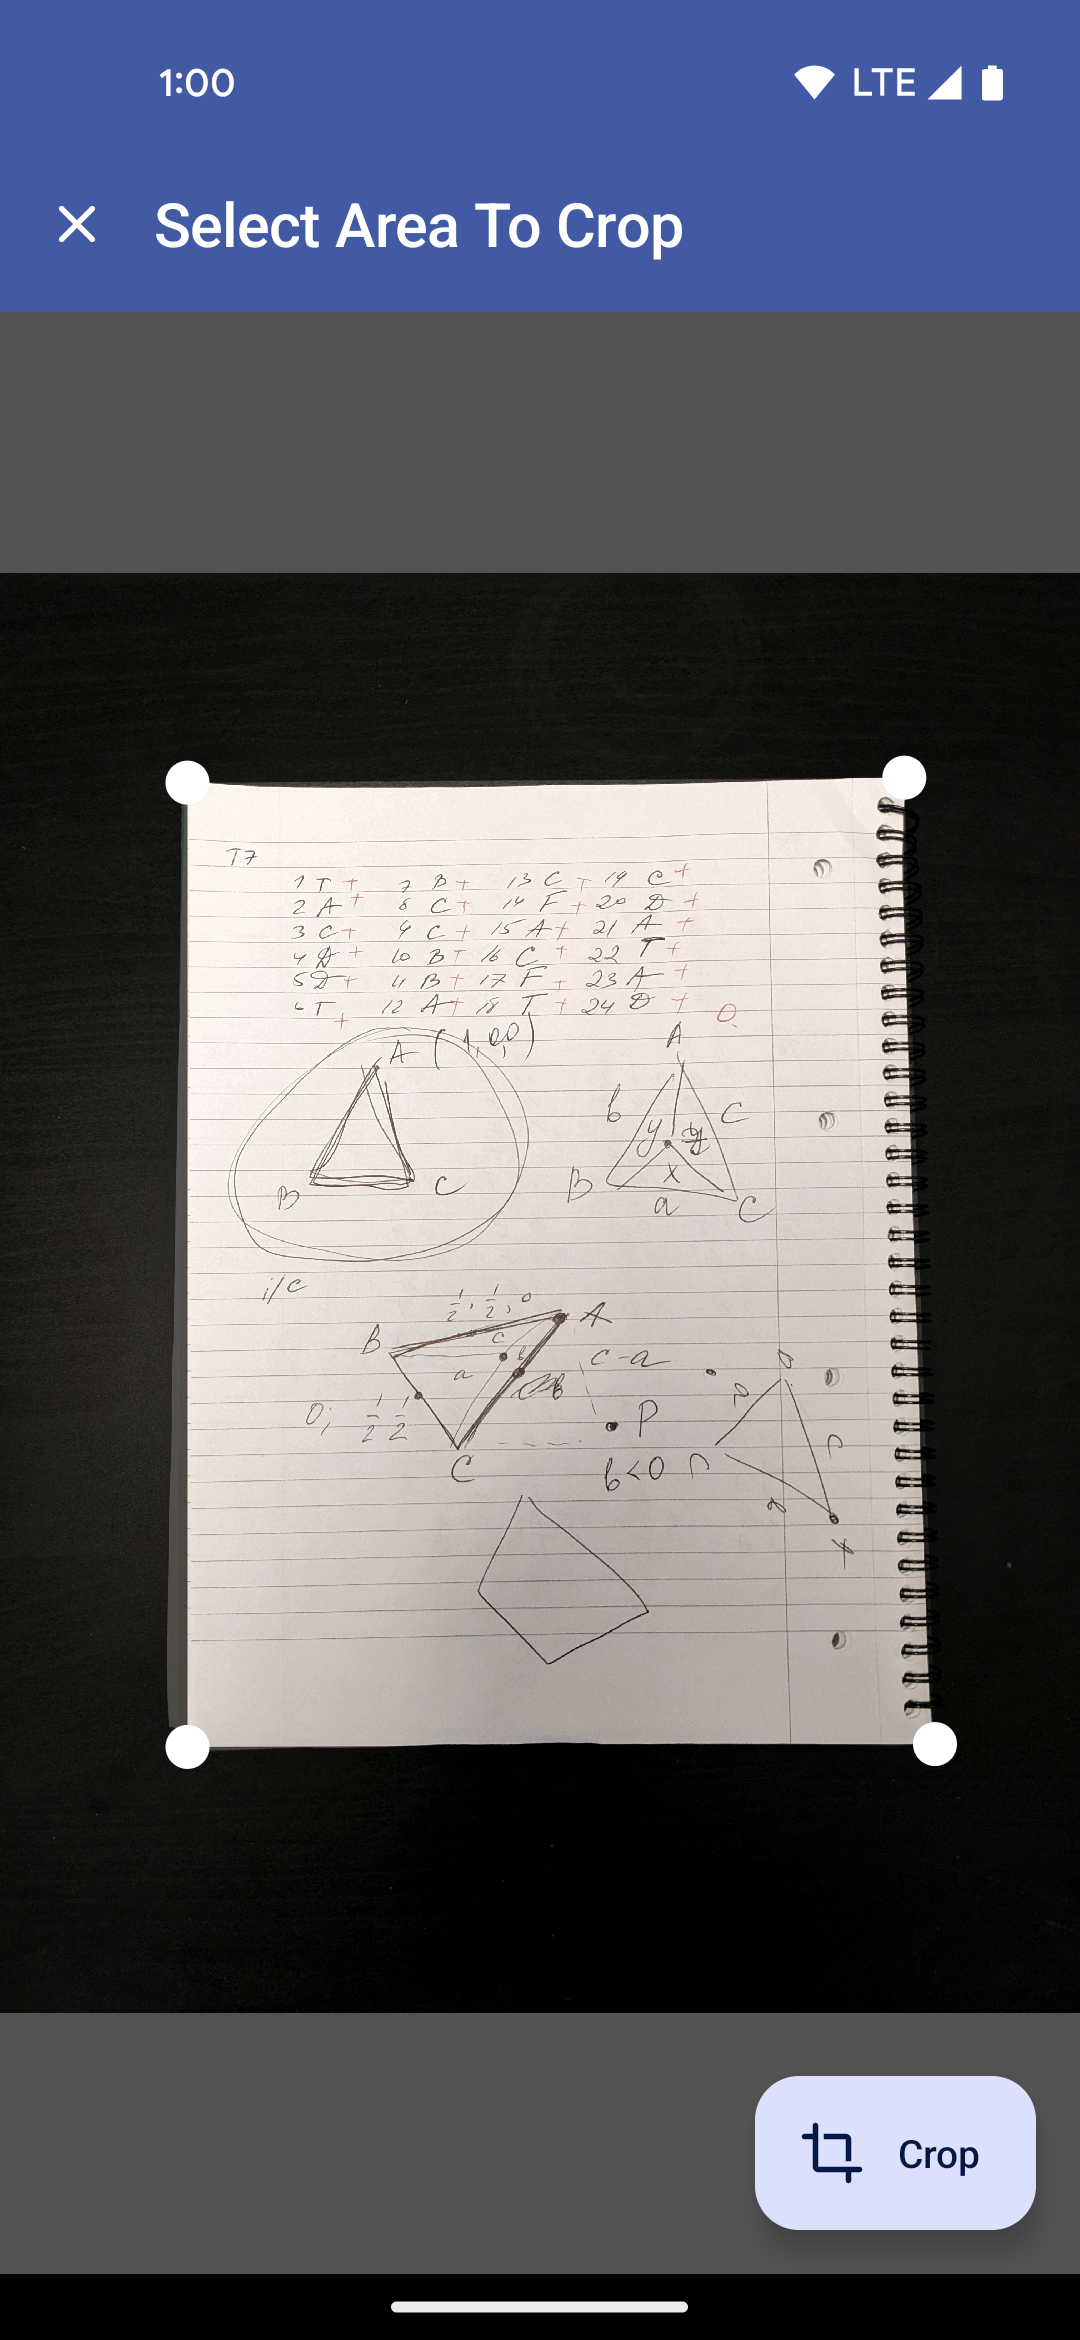 1:00 LTE
Select Area To Crop
T7
1 T + 7 B + 13 C + 19 C +
2 A + 8 C + 14 F + 20 D +
3 C + 9 C + 15 A + 21 A +
4 D + 10 B + 16 C + 22 T +
5 D + 11 B + 17 F + 23 A +
6 T + 12 A + 18 T + 24 D +
0
A (1,0,0)
A
b C
y y
B C
B x
a C
i/c
1/2, 1/2, 0
B A
c b
a c-a
0; 1/2 1/2
P
C
b<0
Crop